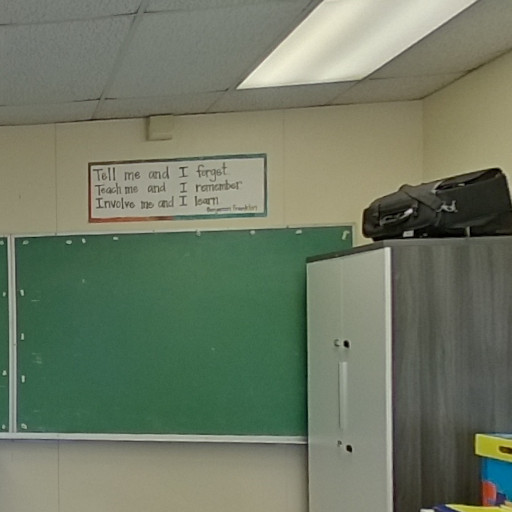 Tell me and I forget.
Teach me and I remember
Involve me and I learn
Benjamin Franklin